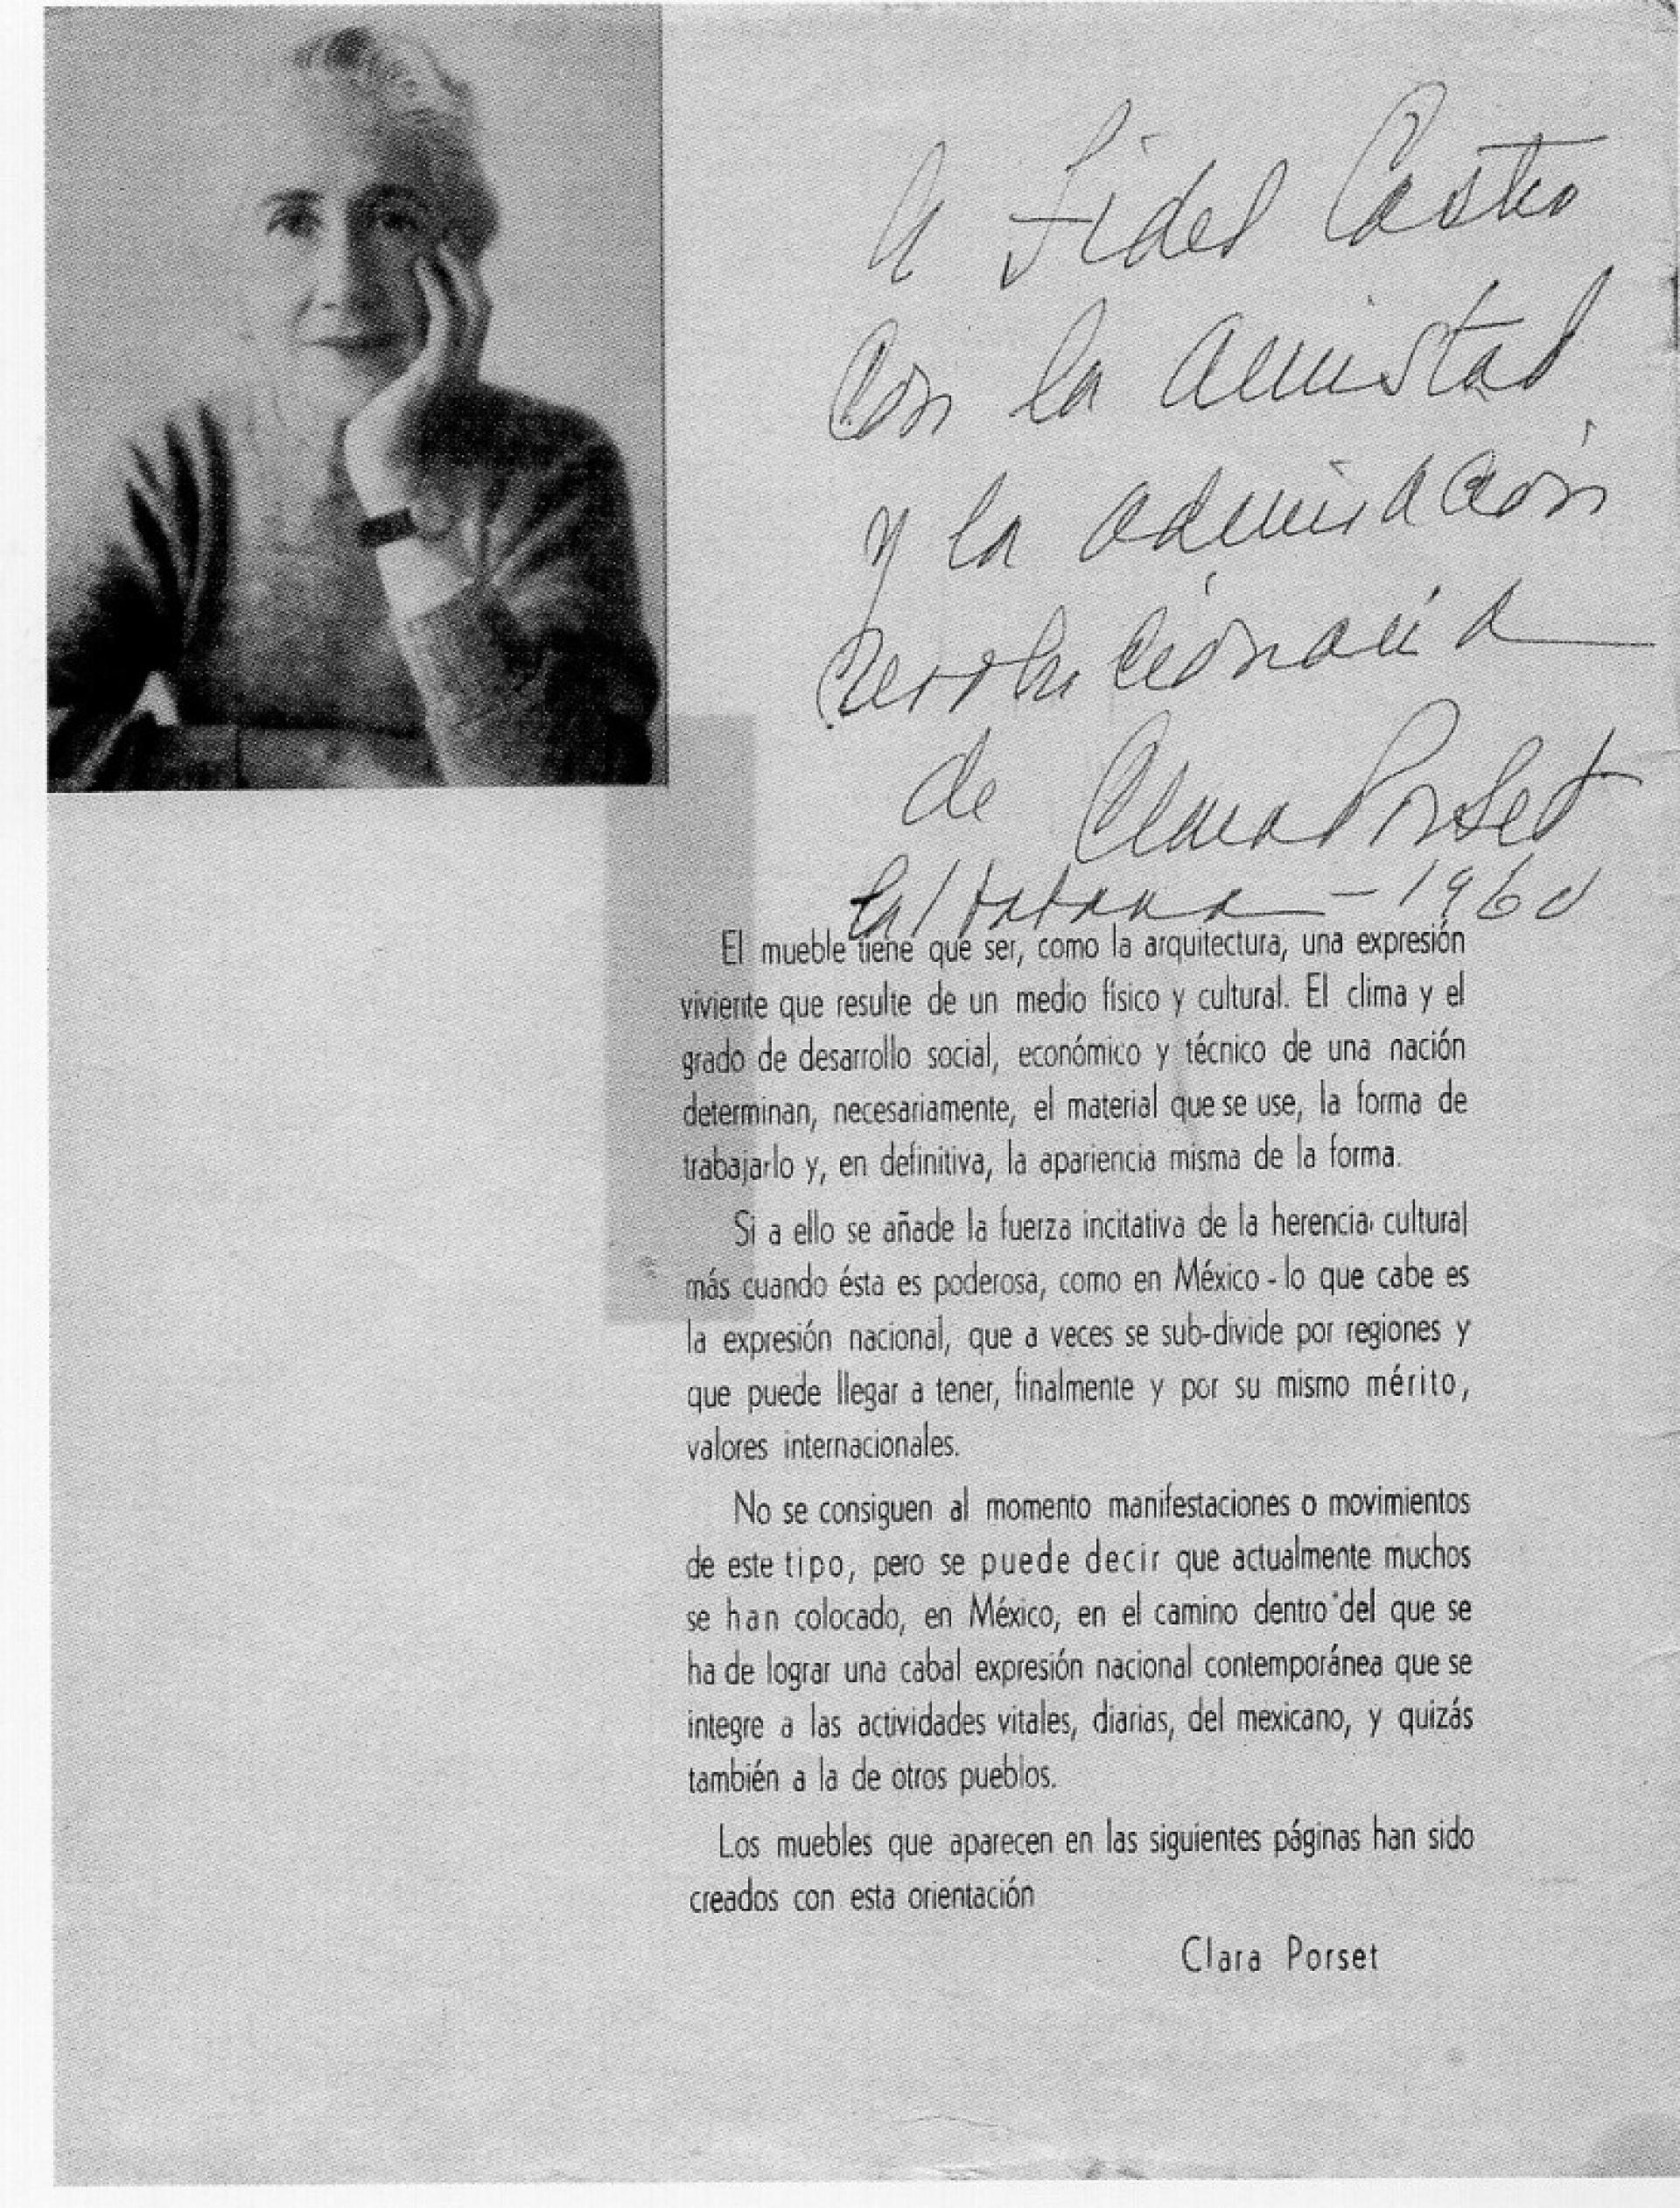 A Fidel Castro
con la amistad
y la admiración
revolucionaria
de Clara Porset
La Habana - 1960
El mueble tiene que ser, como la arquitectura, una expresión
viviente que resulte de un medio físico y cultural. El clima y el
grado de desarrollo social, económico y técnico de una nación
determinan, necesariamente, el material que se use, la forma de
trabajarlo y, en definitiva, la apariencia misma de la forma.
Si a ello se añade la fuerza incitativa de la herencia cultural
más cuando ésta es poderosa, como en México - lo que cabe es
la expresión nacional, que a veces se sub-divide por regiones y
que puede llegar a tener, finalmente y por su mismo mérito,
valores internacionales.
No se consiguen al momento manifestaciones o movimientos
de este tipo, pero se puede decir que actualmente muchos
se han colocado, en México, en el camino dentro del que se
ha de lograr una cabal expresión nacional contemporánea que se
integre a las actividades vitales, diarias, del mexicano, y quizás
también a la de otros pueblos.
Los muebles que aparecen en las siguientes páginas han sido
creados con esta orientación
Clara Porset